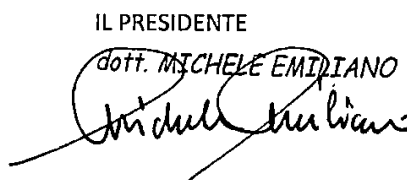 IL PRESIDENTE
dott. MICHELE EMILIANO
Michele Emiliano